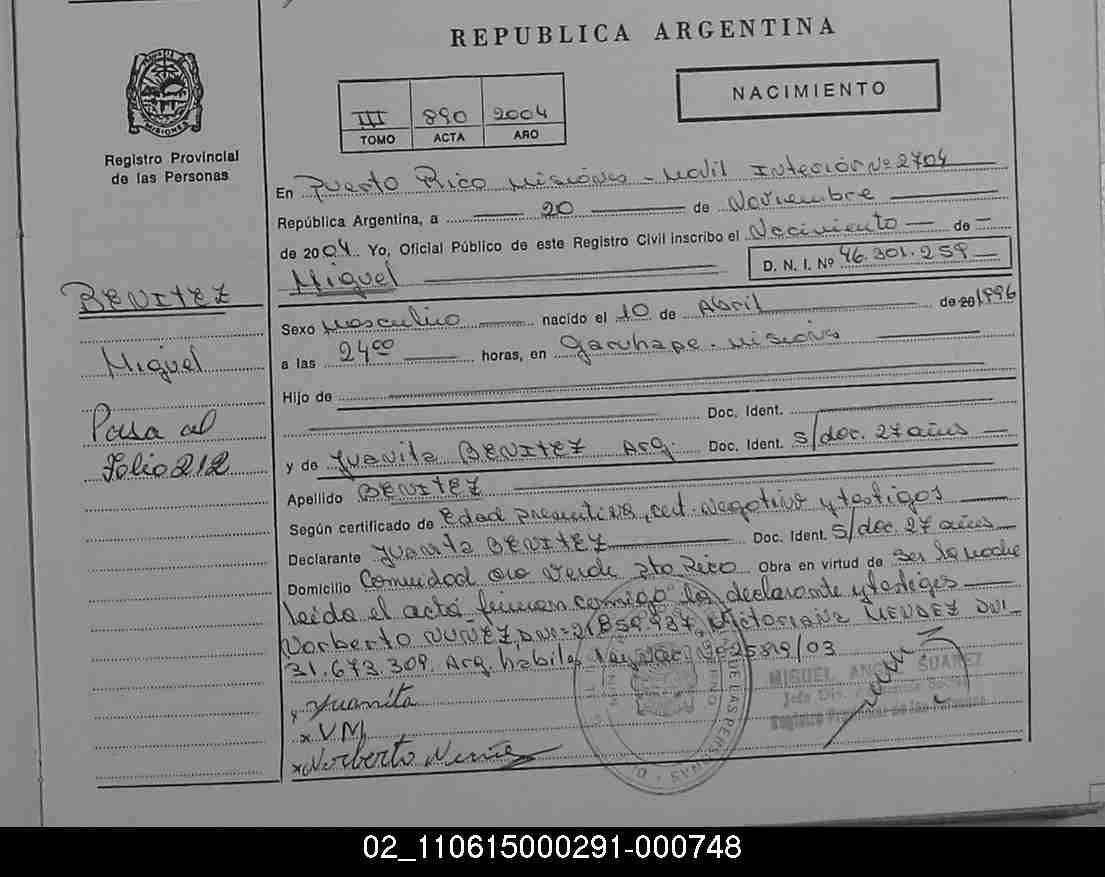 REPUBLICA ARGENTINA
MISIONES
Registro Provincial
de las Personas
III 890 2004
TOMO ACTA AÑO
NACIMIENTO
En Puerto Rico Misiones - Movil Interior Nº 2704
República Argentina, a 20 de Noviembre
de 2004. Yo, Oficial Público de este Registro Civil inscribo el Nacimiento de
Miguel D. N. I. Nº 46.301.259
Sexo Masculino nacido el 10 de Abril de 20 1996
a las 24 00 horas, en Garuhape. Misiones
Hijo de
Doc. Ident.
y de Juanita BENITEZ Arg. Doc. Ident. S/doc. 27 años
Apellido BENITEZ
Según certificado de Edad presuntiva, cert. Negativo y testigos
Declarante Juanita BENITEZ Doc. Ident. S/doc. 27 años
Domicilio Comunidad Oro Verde Pto. Rico Obra en virtud de ser la madre
leída el acta firman conmigo la declarante y testigos
Norberto NUNEZ, DNI= 21.859.937, Victoriana MENDEZ DNI
31.673.309. Arg. habiles 25819/03
x Juanita
x V M
x Norberto
MIGUEL ANGEL SUAREZ
Registro Provincial de las Personas
DE LAS PERSONAS
BENITEZ
Miguel
Pasa al
Folio 212
02_110615000291-000748